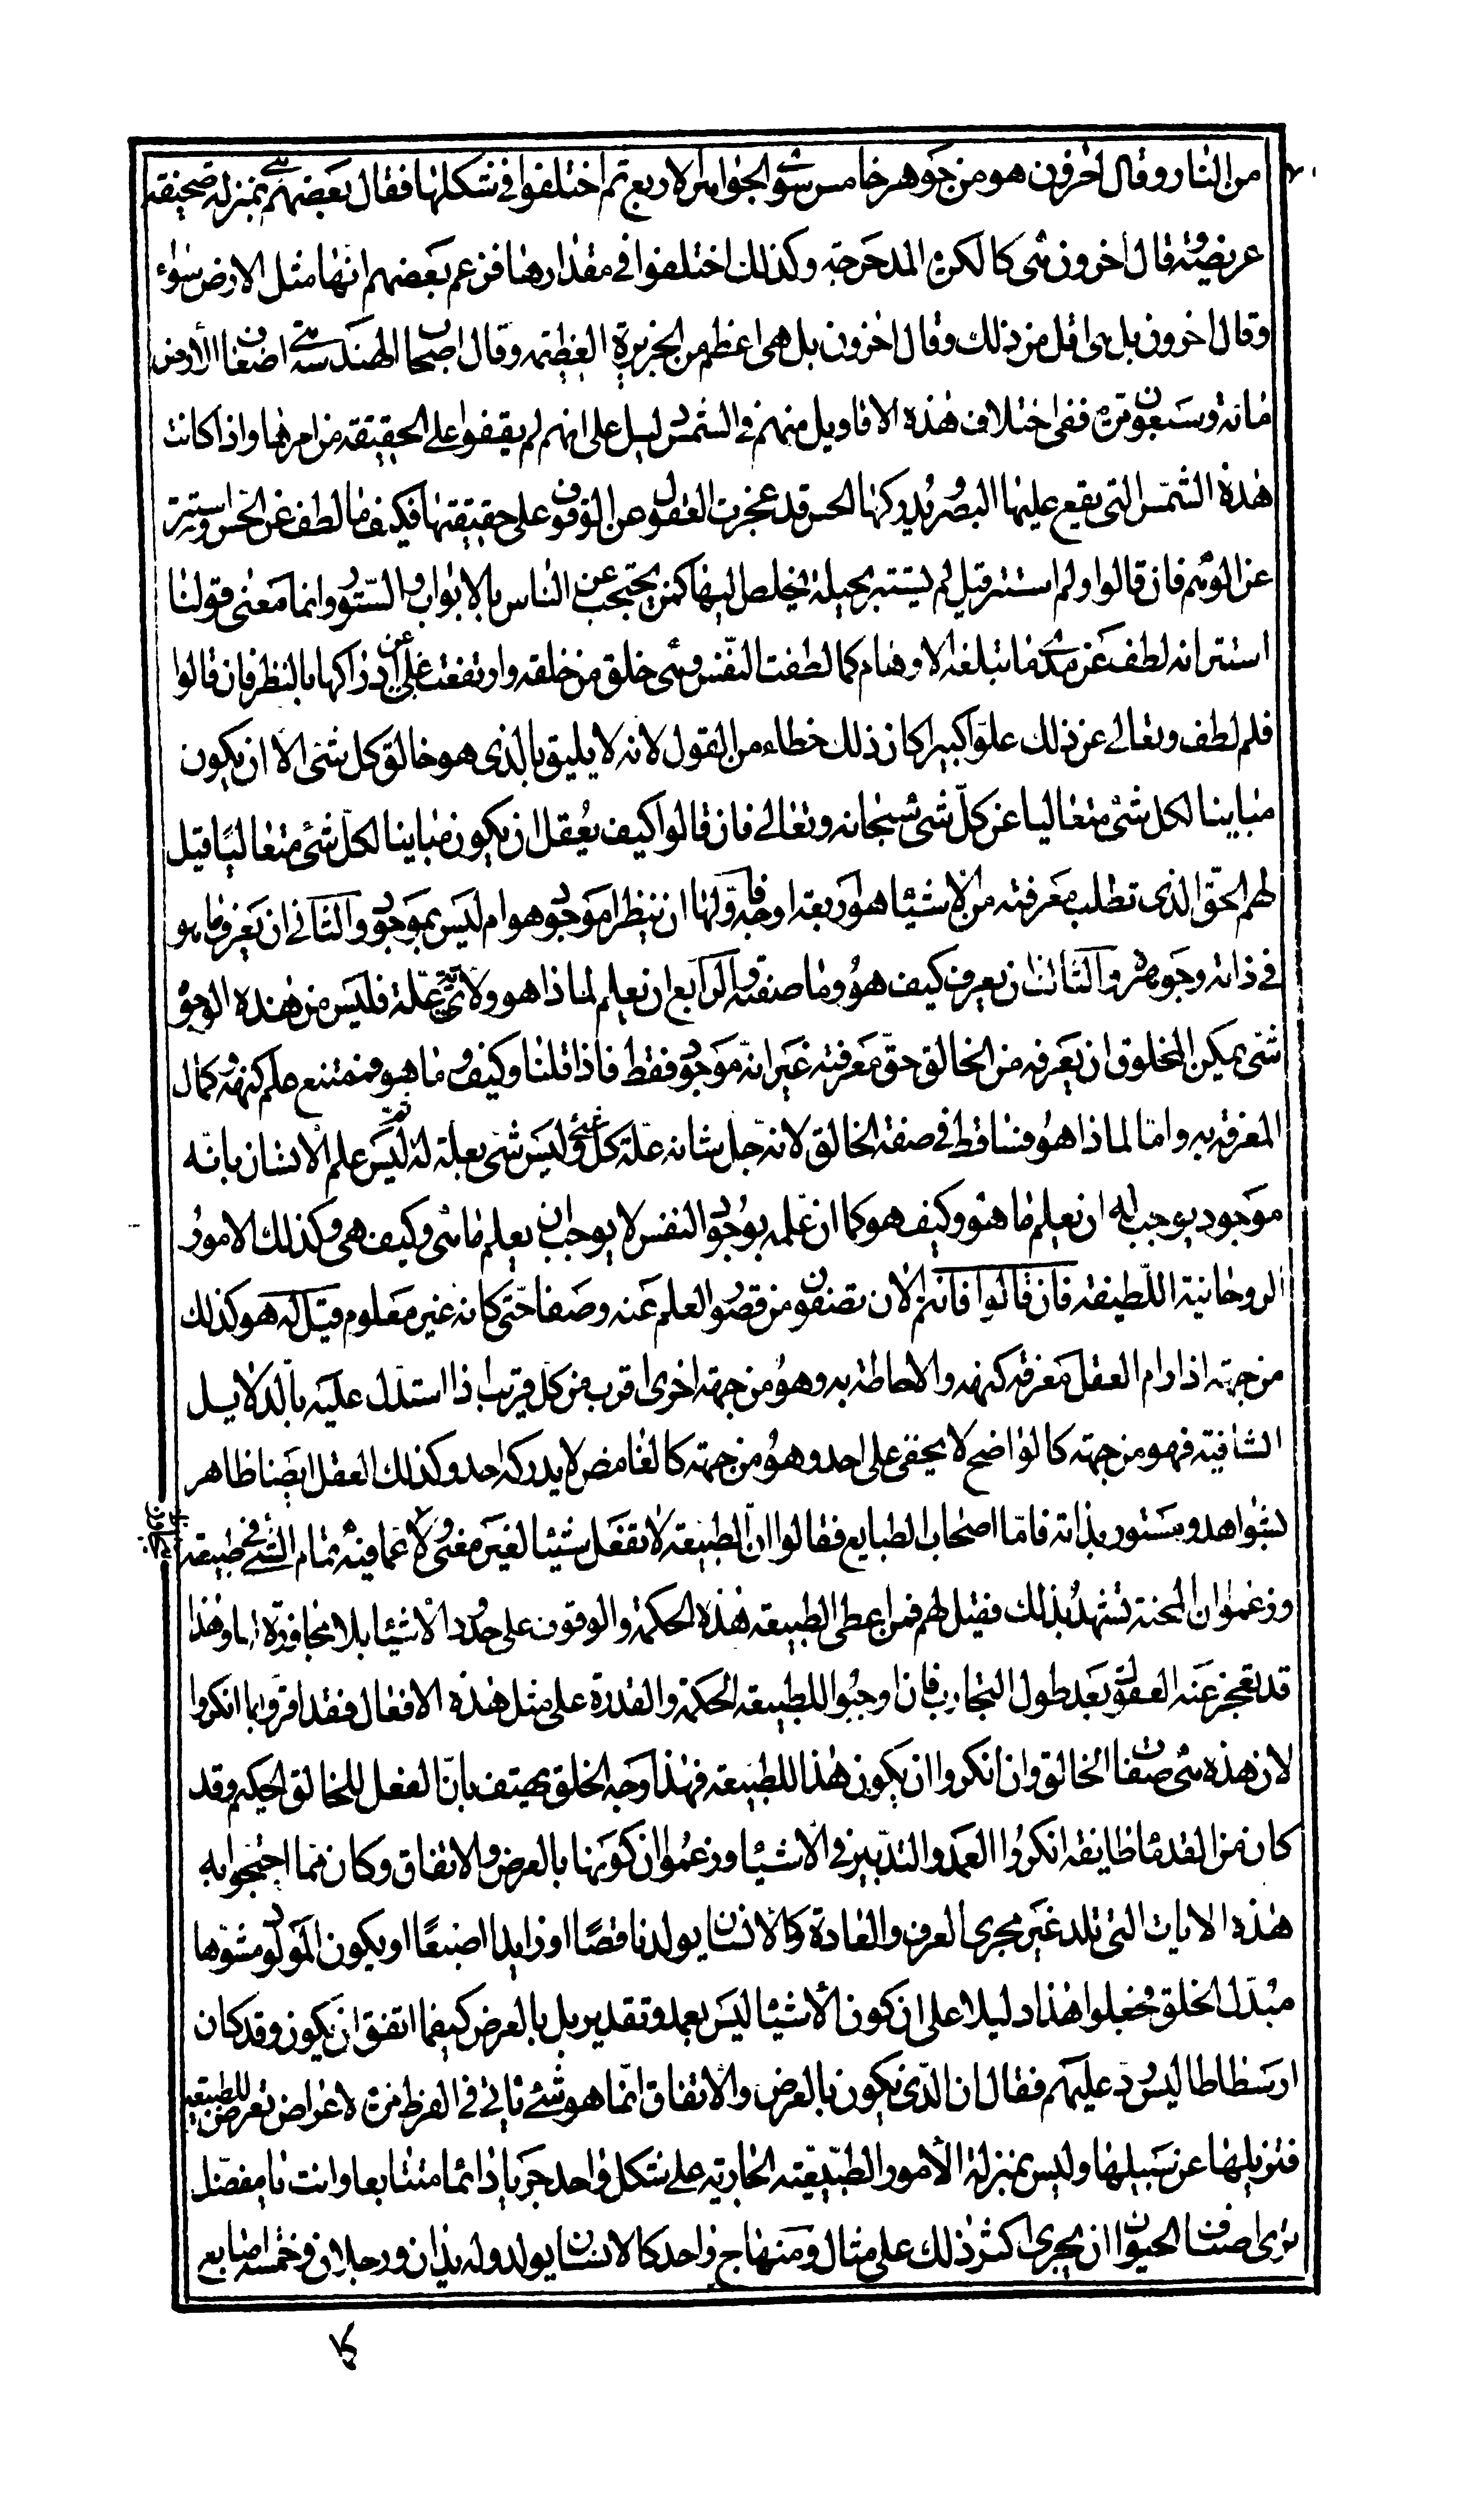 من النار وقال اخرون هو من جوهر خامس سوى الجواهر الاربع ثم اختلفوا في شكلها فقال بعضهم هي بمنزله صحيفة
عريضة وقال اخرون هى كالكرة المدحرجة وكذلك اختلفوا في مقدارها فزعم بعضهم انها مثل الارض سواء
وقال اخرون بل هى اقل من ذلك وقال اخرون بل هى اعظم من الجزيرة العظيمة وقال اصحاب الهندسة هي اضعاف الأرض
مائة وسبعون مرة ففى اختلاف هذه الاقاويل منهم في الشمس دليل على انهم لم يقفوا على الحقيقة من امرها واذا كانت
هذه الشمس التى يقع عليها البصر ويدركها الحس قد عجزت العقول عن الوقوف على حقيقتها فكيف ما لطف عن الحس واستتر
عن الوهم فان قالوا ولم استتر قيل لم يستتر بحيلة يخلص اليها كمن يحتجب عن الناس بالابواب والستور وانما معنى قولنا
استتر انه لطف عن مدى ما تبلغه الاوهام كما لطفت النفس وهى خلق من خلقه وارتفعت عن ادراكها بالنظر فان قالوا
فلم لطف وتعالى عن ذلك علوا كبيرا كان ذلك خطاء من القول لانه لا يليق بالذى هو خالق كل شئ الا ان يكون
مباينا لكل شئ متعاليا عن كل شئ سبحانه وتعالى فان قالوا كيف يعقل ان يكون مباينا لكل شئ متعاليا قيل
لهم الحق الذى تطلب معرفته من الاشياء هو اربعة اوجه فاولها ان ينظر اموجود هو ام ليس بموجود والثانى ان يعرف ما هو
في ذاته وجوهره والثالث ان يعرف كيف هو وما صفته والرابع ان يعلم لماذا هو ولاية علة فليس من هذه الوجوه
شئ يمكن المخلوق ان يعرفه من الخالق حق معرفته غير انه موجود فقط فاذا قلنا وكيف وما هو فممتنع علم كنهه وكمال
المعرفة به واما لماذا هو فساقط في صفة الخالق لانه جل شانه علة كل شئ وليس شئ بعلة له ثم ليس علم الانسان بانه
موجود يوجب له ان يعلم ما هو وكيف هو كما ان علمه بوجود النفس لا يوجب ان يعلم ما هى وكيف هى وكذلك الامور
الروحانية اللطيفة فان قالوا فانتم الان تصفون من قصور العلم عنه وصفا حتى كانه غير معلوم قيل له هو كذلك
من جهة اذا رام العقل معرفة كنهه والاحاطة به وهو من جهة اخرى اقرب من كل قريب اذا استدل عليه بالدلايل
الشافية فهو من جهة كالواضح لا يخفى على احد وهو من جهة كالغامض لا يدركه احد وكذلك العقل ايضا ظاهر
بشواهده ومستور بذاته فاما اصحاب الطبايع فقالوا ان الطبيعة لا تفعل شيئا لغير معنى ولا عما فيه تمام الشئ في طبيعته
وزعموا ان المحنة تشهد بذلك فقيل لهم فمن اعطى الطبيعة هذه الحكمة والوقوف على حدود الاشياء بلا مجاوزة لها وهذا
قد تعجز عنه العقول بعد طول التجارب فان اوجبوا للطبيعة الحكمة والقدرة على مثل هذه الافعال فقد اقروا بما انكروا
لان هذه هى صفات الخالق وان انكروا ان يكون هذا للطبيعة فهذا وجه الخلق يهتف بان الفعل للخالق الحكيم وقد
كان من القدماء طايفة انكروا العمد والتدبير في الاشياء وزعموا ان كونها بالعرض والاتفاق وكان مما احتجوا به
هذه الايات التى تلد غير مجرى العرف والعادة كالانسان يولد ناقصا او زايدا اصبعا او يكون المولود مشوها
مبدل الخلق فجعلوا هذا دليلا على ان كون الأشياء ليس بعمد وتقدير بل بالعرض كيفما اتفق ان يكون وقد كان
ارسطاطاليس رد عليهم فقال ان الذى يكون بالعرض والاتفاق انما هو شئ ياتى في الفرط مرة لاعراض تعرض للطبيعة
فتزيلها عن سبيلها وليس بمنزلة الأمور الطبيعية الجارية على شكل واحد جريا دائما متتابعا وانت يا مفضل
ترى اصناف الحيوان ان يجرى اكثر ذلك على مثال ومنهاج واحد كالانسان يولد وله يدان ورجلان وخمسة اصابع
كا